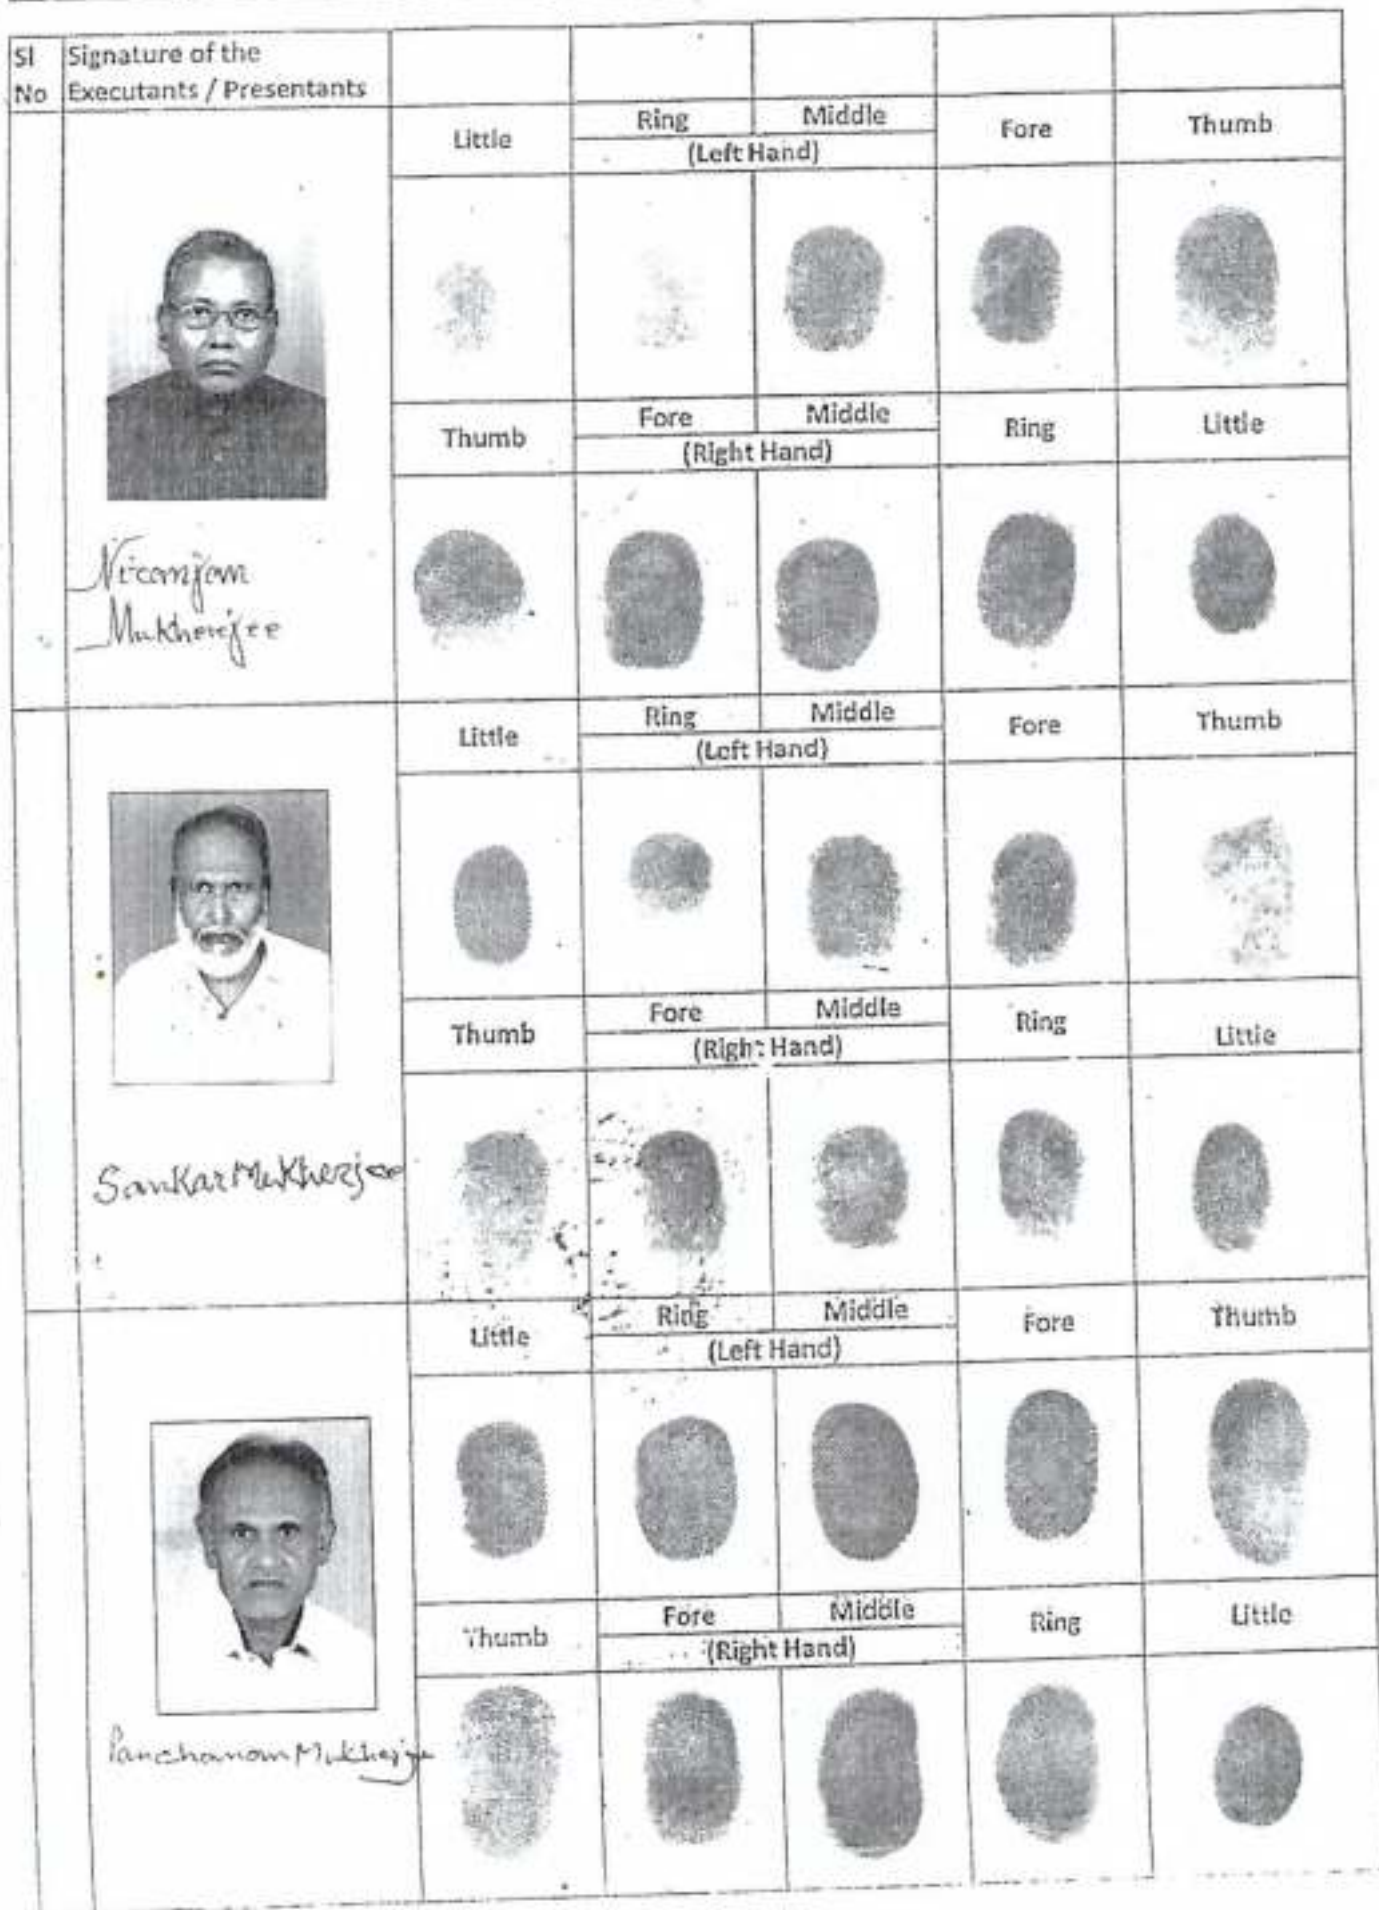 Sl No
Signature of the
Executants / Presentants
Little
Ring
Middle
Fore
Thumb
(Left Hand)
Thumb
Fore
Middle
Ring
Little
(Right Hand)
Niranjan
Mukherjee
Little
Ring
Middle
Fore
Thumb
(Left Hand)
Thumb
Fore
Middle
Ring
Little
(Right Hand)
Sankar Mukherjee
Little
Ring
Middle
Fore
Thumb
(Left Hand)
Thumb
Fore
Middle
Ring
Little
(Right Hand)
Panchanan Mukherjee